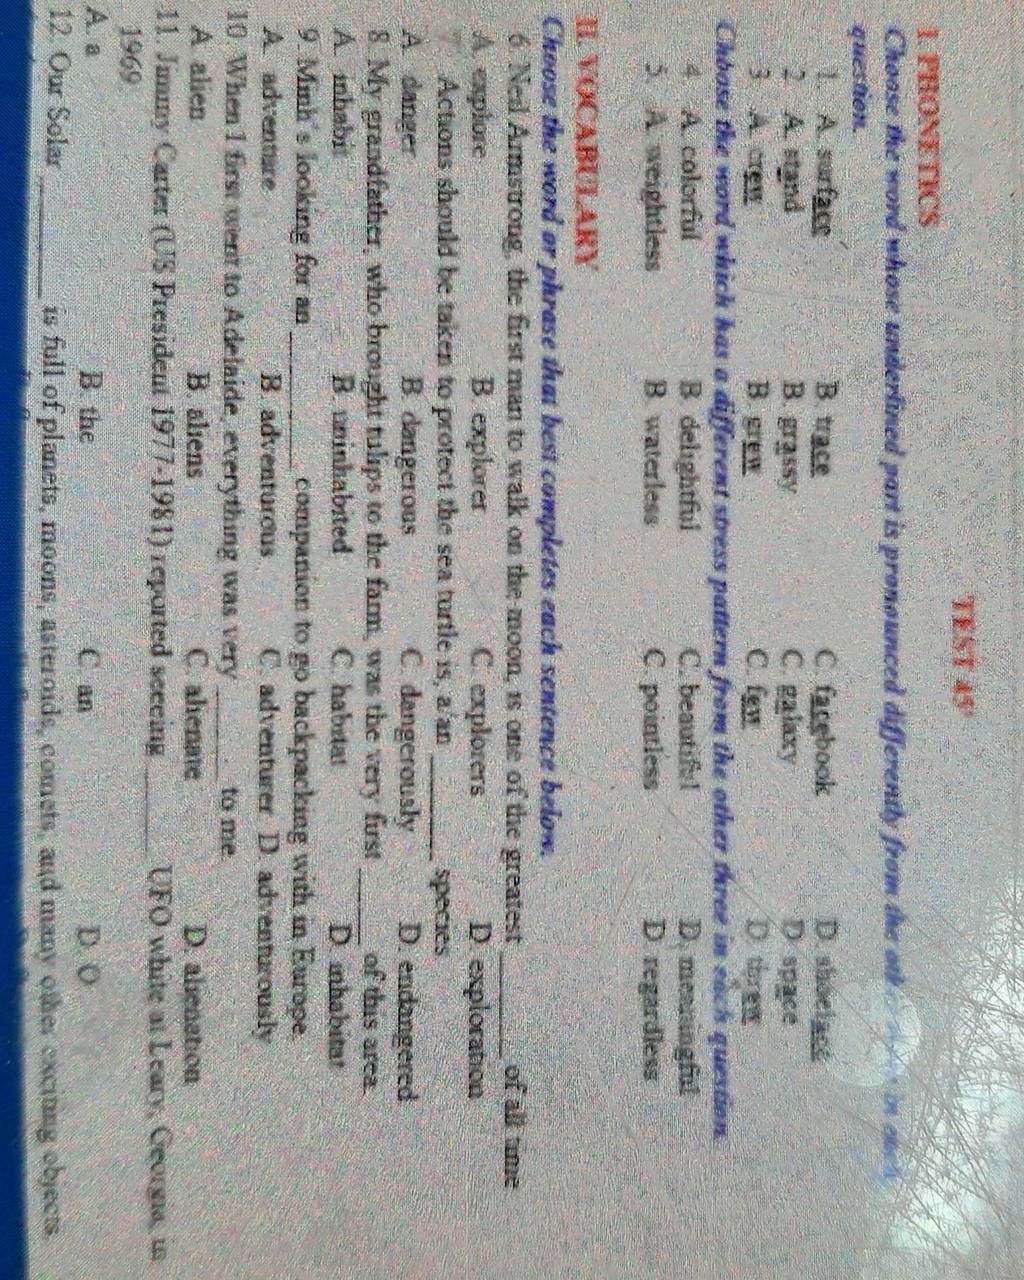 TEST 45
I. PHONETICS
Choose the word whose underlined part is pronounced differently from the
question.
1. A. surface B. trace C. facebook D. shoelace
2. A. stand B. grassy C. galaxy D. space
3. A. crew B. grew C. few D. threw
Choose the word which has a different stress pattern from the other three in each question.
4. A. colorful B. delightful C. beautiful D. meaningful
5. A. weightless B. waterless C. pointless D. regardless
II. VOCABULARY
Choose the word or phrase that best completes each sentence below.
6. Neil Armstrong, the first man to walk on the moon, is one of the greatest ______ of all time
A. explore B. explorer C. explorers D. exploration
7. Actions should be taken to protect the sea turtle is, a/an ______ species
A. danger B. dangerous C. dangerously D. endangered
8. My grandfather, who brought tulips to the farm, was the very first ______ of this area.
A. inhabit B. uninhabited C. habitat D. inhabitat
9. Minh's looking for an ______ companion to go backpacking with in Europe.
A. adventure. B. adventurous C. adventurer D. adventurously
10. When I first went to Adelaide, everything was very ______ to me.
A. alien B. aliens C. alienate D. alienation
11. Jimmy Carter (US President 1977-1981) reported seeing ______ UFO white at Leary, Georgia, in
1969.
A. a B. the C. an D. O
12. Our Solar ______ is full of planets, moons, asteroids, comets, and many other exciting objects.